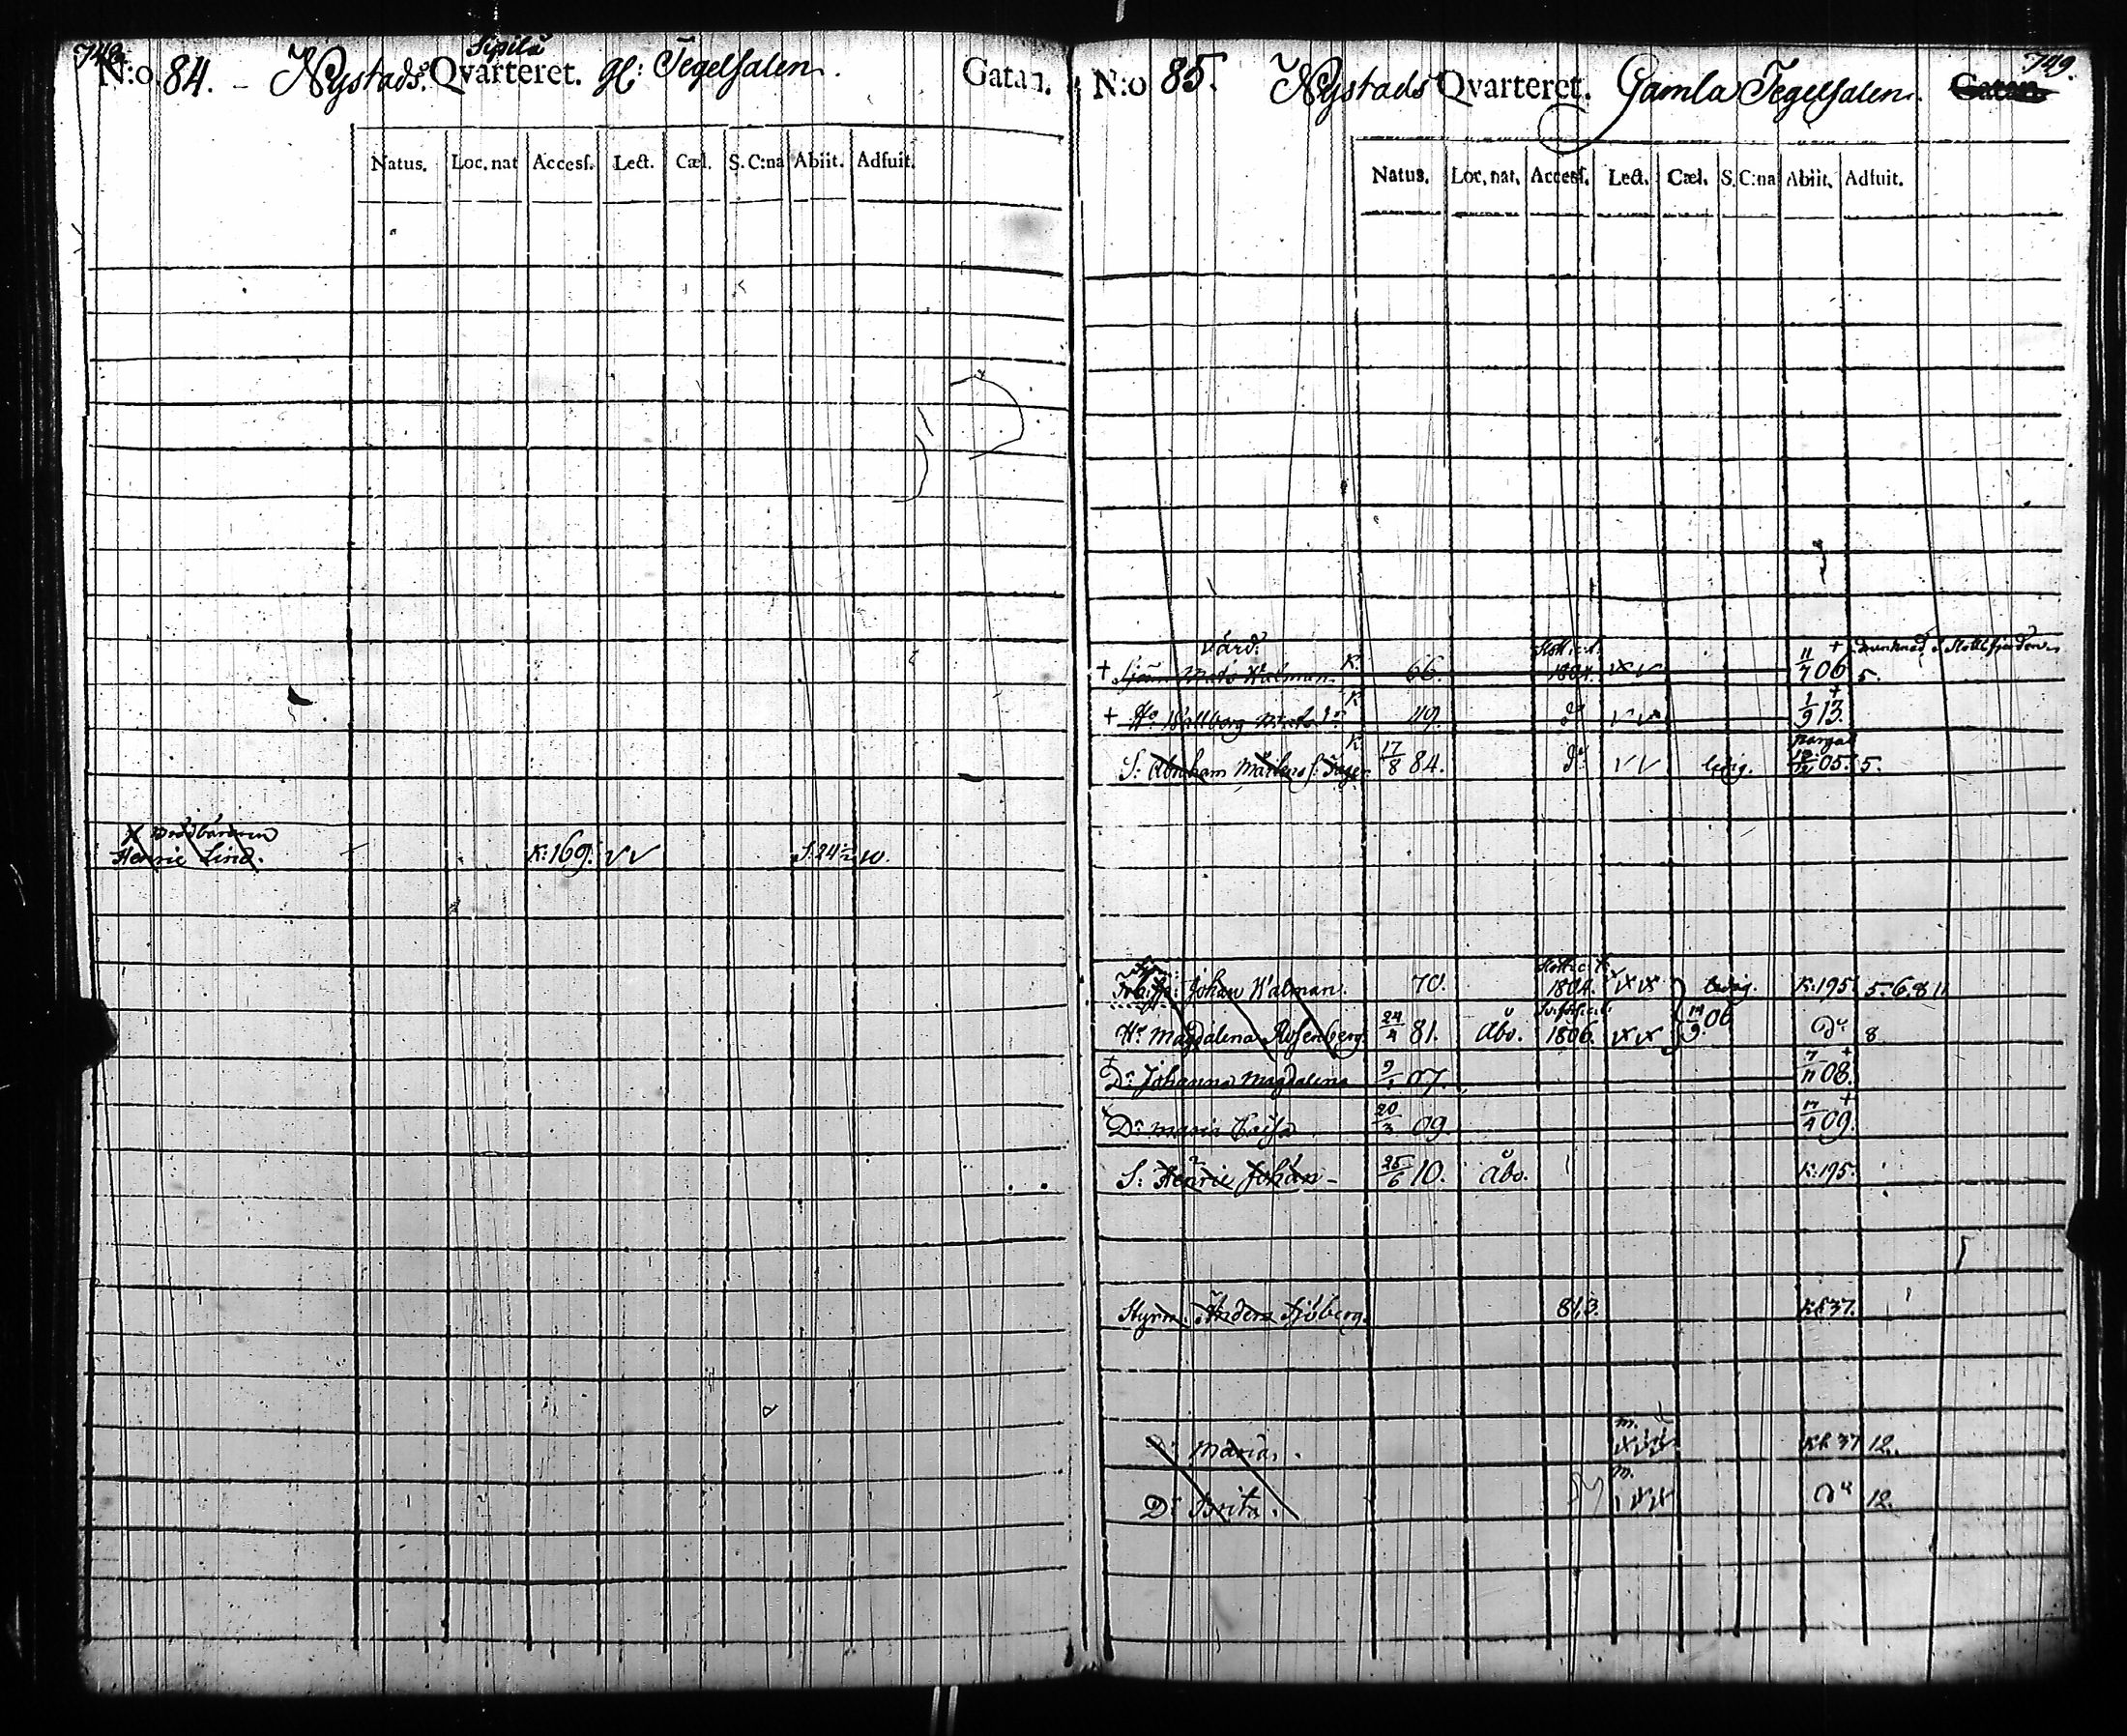 748.
N:o 84. – Nystads Qvarteret. Sipilä gl: Tegelsalen. Gatan.
Natus. Loc. nat Accesſ. Lect. Cæl. S. C:na Abiit. Adfuit.
Henric Lind. K:169. V V 10.
749.
N:o 85. Nystads Qvarteret. Gamla Tegelsalen. Gatan
Natus. Loc. nat. Accesſ. Lect. Cæl. S. C:na Abiit. Adfuit.
värd.
+ Sjöm Mats Walman K. 66. 1804. 11/7 06 + drunknad i 5.
+ H:u Wallborg Mats d:r K 49. d:o V V 1/9 13. +
S: Abraham K. 17/8 84. d:o V V ledig. 12/12 05. 5.
Johan Walman. 70. 1804. ledig. K:195. 5. 6. 8. 11
H:u Magdalena Rosenberg. 24/4 81. Åbo. 1806. 14/9 06 D:o 8
+ D:r Johanna Magdalena 9/1 07. 7/11 08. +
D:r Maria Caisa 20/3 09 17/4 09. +
S: Henric Johan – 25/6 10. Åbo. K:195.
Styrm. Anders Sjöberg. 813. KK 37.
D: Maria. m. KK 37 12.
D:r Brita. m. D:o 12.